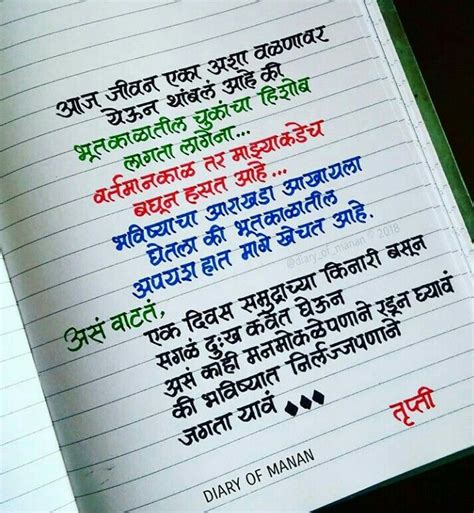 आज जीवन एका अशा वळणावर
येऊन थांबलं आहे की
भूतकाळातील चुकांचा हिशोब
लागता लागेना...
वर्तमानकाळ तर माझ्याकडेच
बघून हसत आहे...
भविष्याचा आराखडा आखायला
घेतला की भूतकाळातील
अपयश हात मागे खेचत आहे.
असं वाटतं,
एक दिवस समुद्राच्या किनारी बसून
सगळं दुःख कवेत घेऊन
असं काही मनमोकळेपणाने रडून घ्यावं
की भविष्यात निर्लज्जपणाने
जगता यावं ♦♦♦
तृप्ती
DIARY OF MANAN
@diary_of_manan © 2018